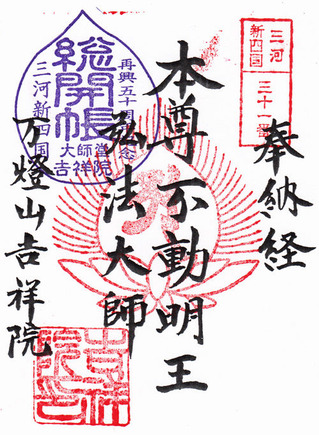 三河
新四国
三十一番
奉納経
本尊不動明王
弘法大師
万燈山吉祥院
再興五十周年記念
総開帳
大師堂
吉祥院
三河新四国
吉祥院印